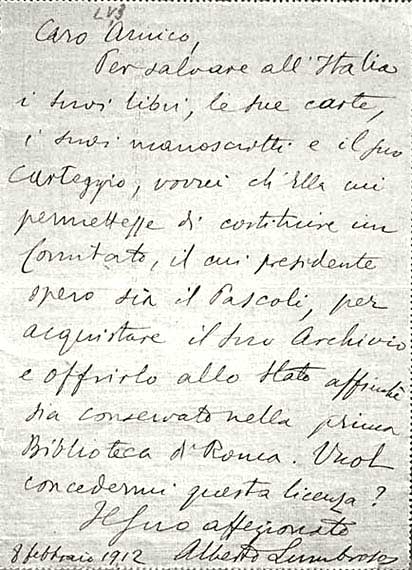 LV3
Caro Amico,
Per salvare all'Italia
i suoi libri, le sue carte,
i suoi manoscritti e il suo
Carteggio, vorrei ch'Ella mi
permettesse di costituire un
Comitato, il cui presidente
spero sia il Pascoli, per
acquistare il suo Archivio
e offrirlo allo Stato affinchè
sia conservato nella prima
Biblioteca di Roma. Vuol
concedermi questa licenza?
Il suo affezionato
8 febbraio 1912 Alberto Lumbroso